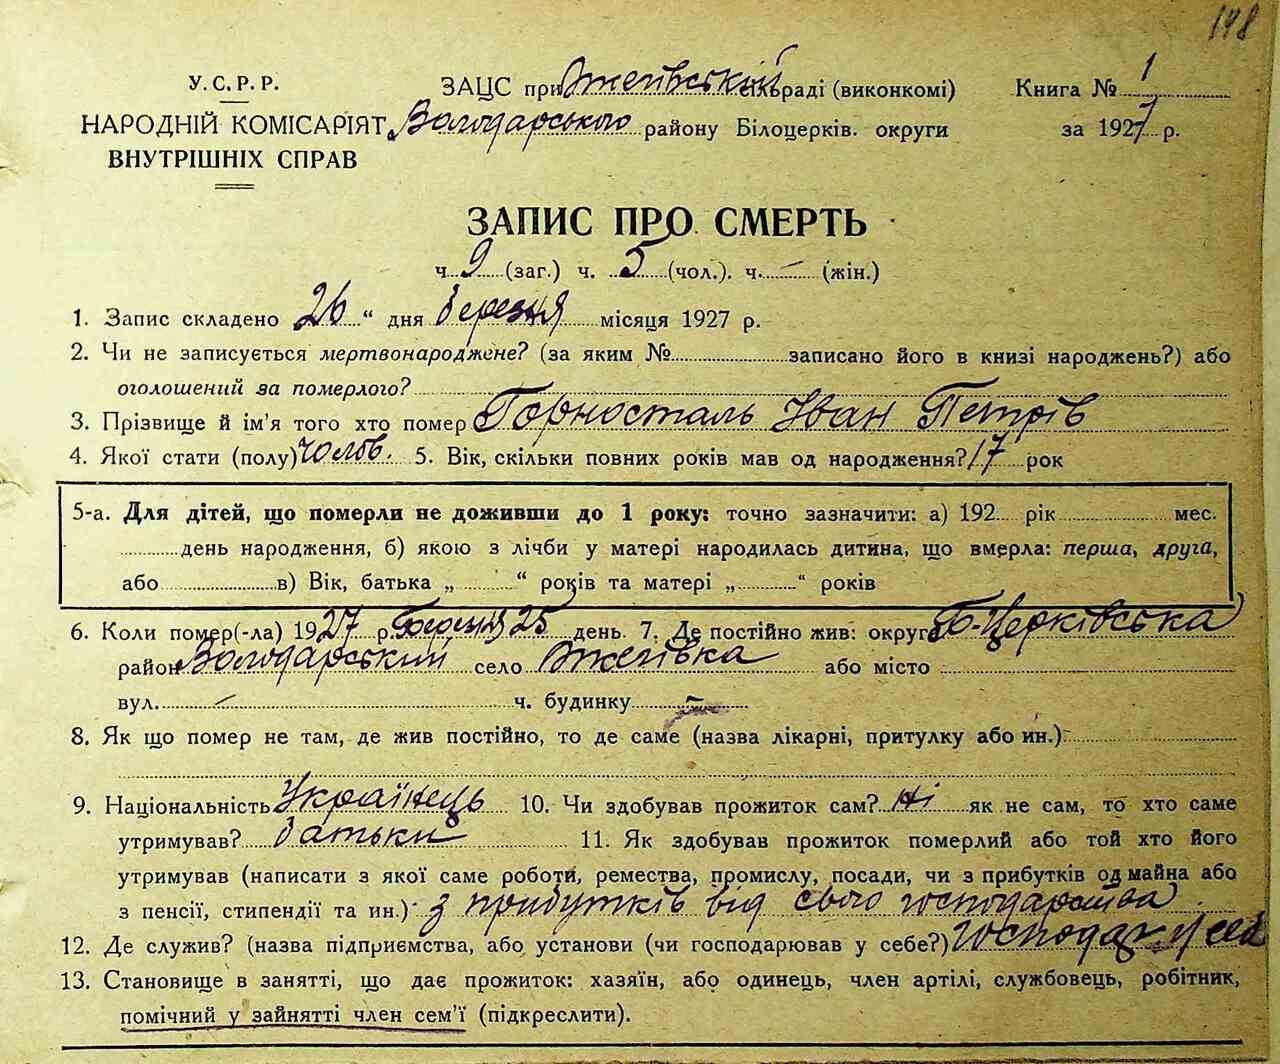 148
У.С.Р.Р. ЗАЦС при Вжеївській сільраді (виконкомі) Книга № 1
НАРОДНІЙ КОМІСАРІЯТ Володарського району Білоцерків. округи за 1927 р.
ВНУТРІШНІХ СПРАВ
ЗАПИС ПРО СМЕРТЬ
ч. 9 (заг.) ч. 5 (чол.). ч. – (жін.)
1. Запис складено 26 “ дня березня місяця 1927 р.
2. Чи не записується мертвонароджене? (за яким № записано його в книзі народжень?) або
оголошений за померлого?
3. Прізвище й ім'я того хто помер Горносталь Іван Петрів
4. Якої стати (полу) чолов. 5. Вік, скільки повних років мав од народження? 17 рок
5-а. Для дітей, що померли не доживши до 1 року: точно зазначити: а) 192 рік мес.
день народження, б) якою з лічби у матері народилась дитина, що вмерла: перша, друга,
або в) Вік, батька „ “ років та матері „ “ років
6. Коли помер(-ла) 1927 р. Березня 25 день. 7. Де постійно жив: округа Б-Церківська
район Володарський село Вжеївка або місто
вул. – ч. будинку –
8. Як що помер не там, де жив постійно, то де саме (назва лікарні, притулку або ин.)
9. Національність Українець 10. Чи здобував прожиток сам? ні як не сам, то хто саме
утримував? батьки 11. Як здобував прожиток померлий або той хто його
утримував (написати з якої саме роботи, ремества, промислу, посади, чи з прибутків од майна або
з пенсії, стипендії та ин.) з прибутків від свого господарства
12. Де служив? (назва підприємства, або установи (чи господарював у себе?) господар. у себе
13. Становище в занятті, що дає прожиток: хазяїн, або одинець, член артілі, службовець, робітник,
помічний у зайнятті член сем'ї (підкреслити).